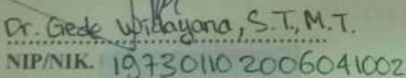 Dr. Gede Widayana, S.T., M.T.
NIP/NIK. 197301102006041002